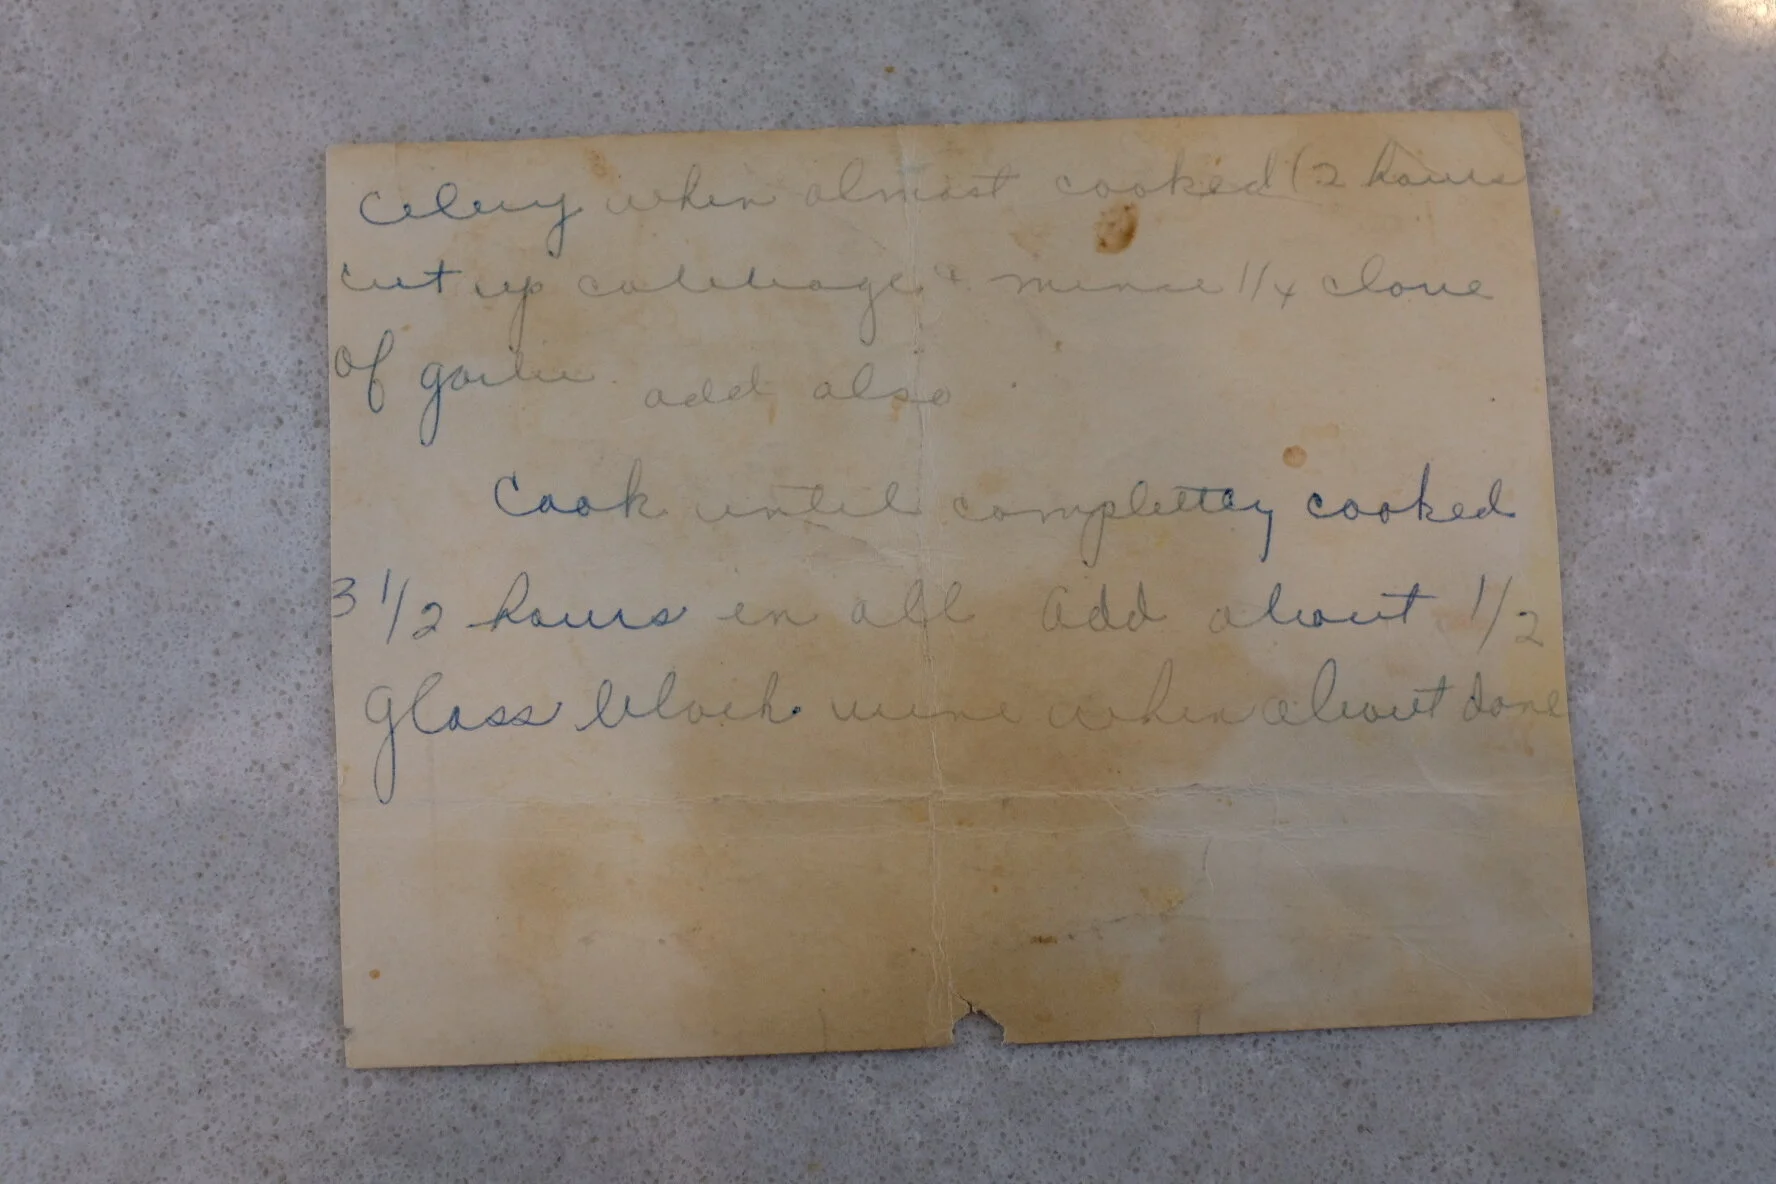 Celery when almost cooked (2 hours
cut up cabbage & mince 1/4 clove
of garlic add also
Cook until completey cooked
3 1/2 hours in all Add about 1/2
glass black wine when about done